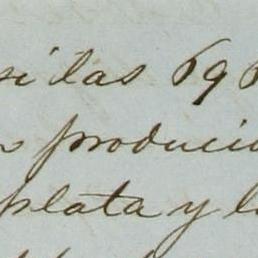 si las 696
producio
plata y l